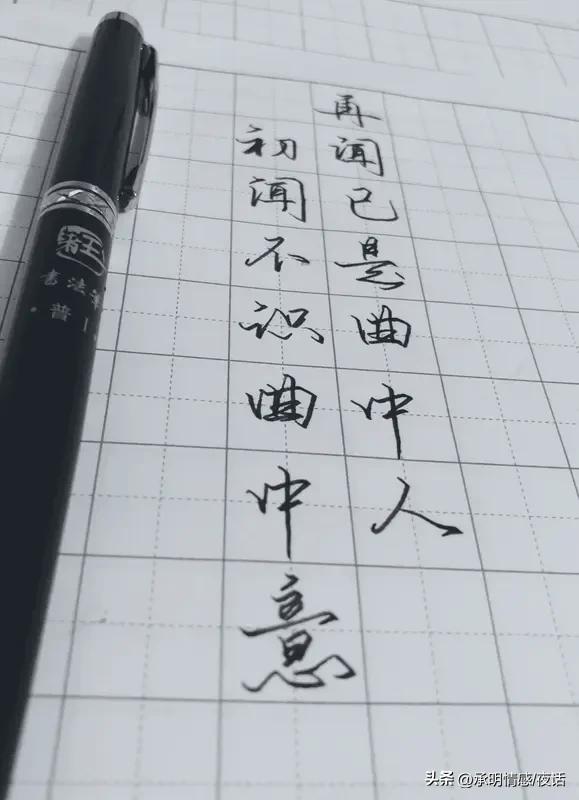 初闻不识曲中意
再闻已是曲中人
书法
普
头条 @承明情感/夜话